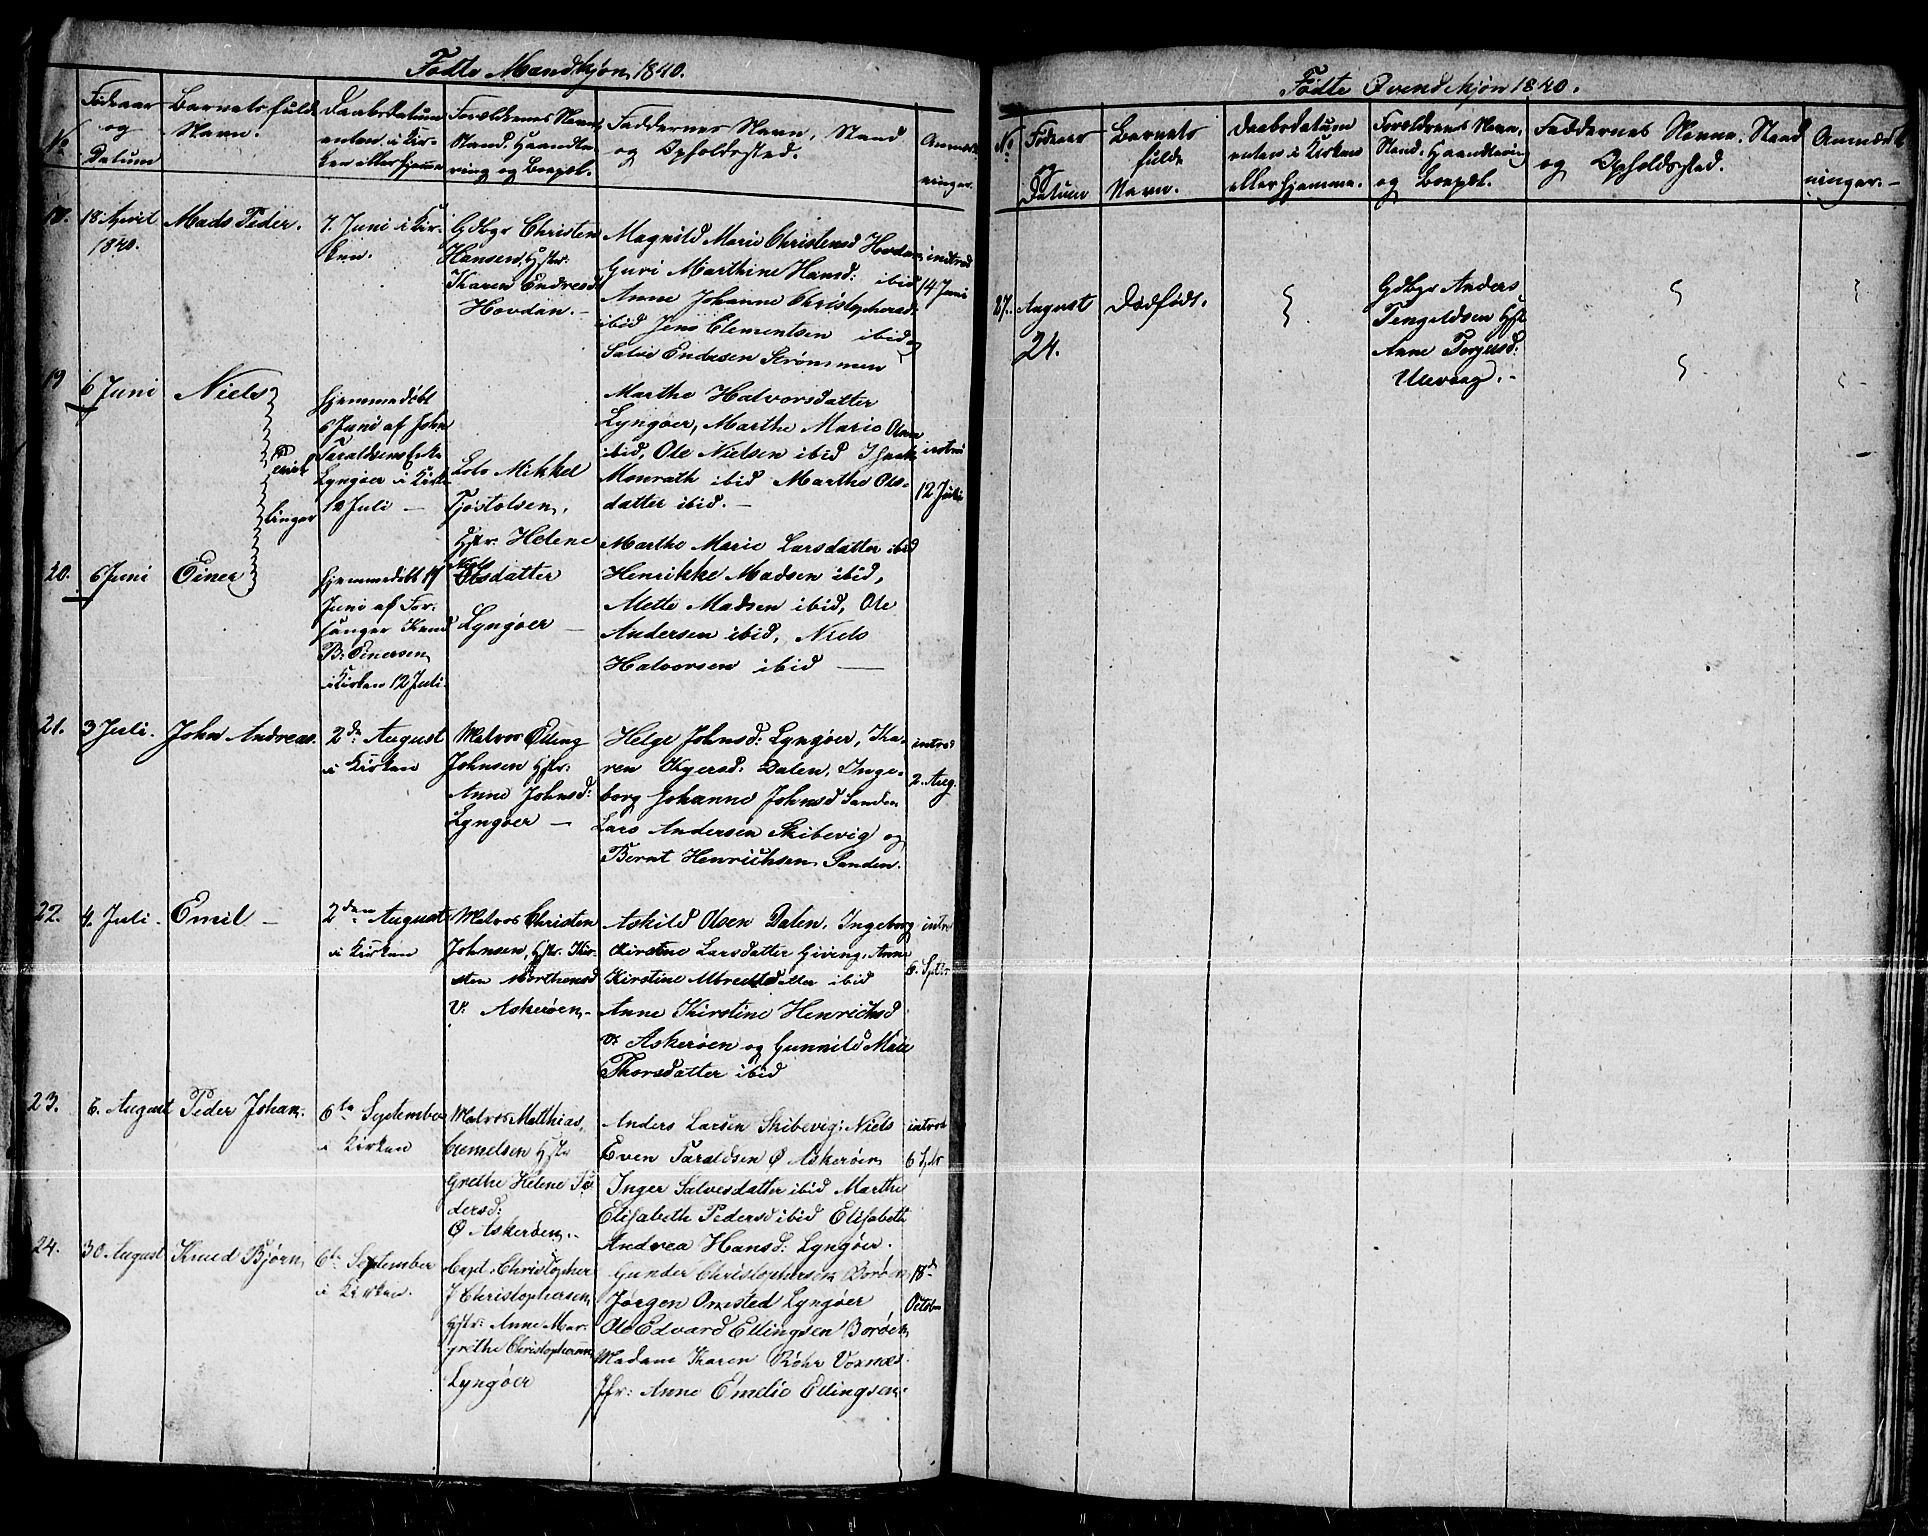 Födte Mandkjøn 1840.
No
Födeaar og Datum
Barnets fulde Navn.
Daabsdatum enten i Kirken eller hjemme
Forældrenes Navn, Stand, Haandtæring og Boepæl.
Faddernes Navn, Stand og Opholdssted.
Anmærkninger.
18. April 1840.
Mads Peder.
7. Juni i Kirken.
Gdbgr Christen
Hansen, Hstr:
Karen Endresd
Hovdan. -
Magnild Marie Christensd Hovdan
Guri Marthine Hansd: ibid
Anne Johanne Christophersd:
ibid Jens Clementsen ibid og
Salve Endresen Strømmen
introd
14 Juni
19
6 Juni
Niels
Tvillinger
hjemmedöbt
6 Juni af John
Taraldsen
Lyngøer i Kirken
12 Juli -
Mikkel
Tjöstolsen,
Hstr: Helene
Niels
datter
Lyngøer -
Marthe Halvorsdatter
Lyngøer, Marthe Marie Olsen
ibid, Ole Nielsen ibid Isaak
Monrath ibid Marthe Ols-
datter ibid. -
introd
12 Juli
20.
6 Juni
Einer
hjemmedöbt 17
Juni af For-
sanger Knud
B. Einersen
i Kirken 12 Juli.
Marthe Marie Larsdatter ibid
Henrikke Madsen ibid,
Mette Madsen ibid, Ole
Andersen ibid, Niels
Halvorsen ibid -
21.
3 Juli.
John Andreas.
2den August
i Kirken
Matros Elling
Johnsen Hstr:
Anne Johnsd:
Lyngøer -
Helge Johnsd: Lyngøer, Ka-
ren Dalen, Inge-
borg Johanne Johnsd Sanden
Lars Andersen Skibevig og
Bernt Henrichsen Sanden.
introd
2. Aug.
22.
4. Juli -
Emil -
2den August
i Kirken
Matros Christen
Johnsen, Hstr. Kir-
sten Morthensd
V: Askerøen, -
Askild Olsen Dalen, Ingeborg
Kirstine Larsdatter Giving, Anne
Kirstine Albrectsdatter ibid
Anne Kirstine Henrichsd
V: Askerøen og Gunnild Marie
Thorsdatter ibid
introd
6. Septbr
23.
6. August
Peder Johan.
6te September
i Kirken
Matros Matthias
Clemetsen Hstr
Grethe Helene Pe-
dersd:
Ø Askerøen. -
Anders Larsen Skibevig, Niels
Even Taraldsen Ø Askerøen
Inger Salvesdatter ibid Marthe
Elisabeth Pedersd ibid Elisabeth
Andrea Hansd: Lyngøer.
introd
6 Septbr
24.
30 August
Knud Bjørn
6te September
i Kirken.
Capt. Christopher
J Christophersen,
Hstr: Anne Mar-
grethe Christophersen,
Lyngøer
Gunder Christophersen Borøen
Jørgen Omsted Lyngøer
Ole Edvard Ellingsen Borøen,
Madame Karen Röhr Voxnæs
Jfr: Anne Emelie Ellingsen.
18de
October
Födte Qvindekjøn 1840.
No
Födeaar og Datum
Barnets fulde Navn.
Daabsdatum enten i Kirken eller hjemme.
Forældrens Navn, Stand, Haandtæring og Boepæl.
Faddernes Navne, Stand og Opholdssted.
Anmærkninger. -
27.
August
24.
Dødfødt.
Gdbgr Anders
Tengeldsen Hstr
Anne Torjusd:
Ulevaag. -